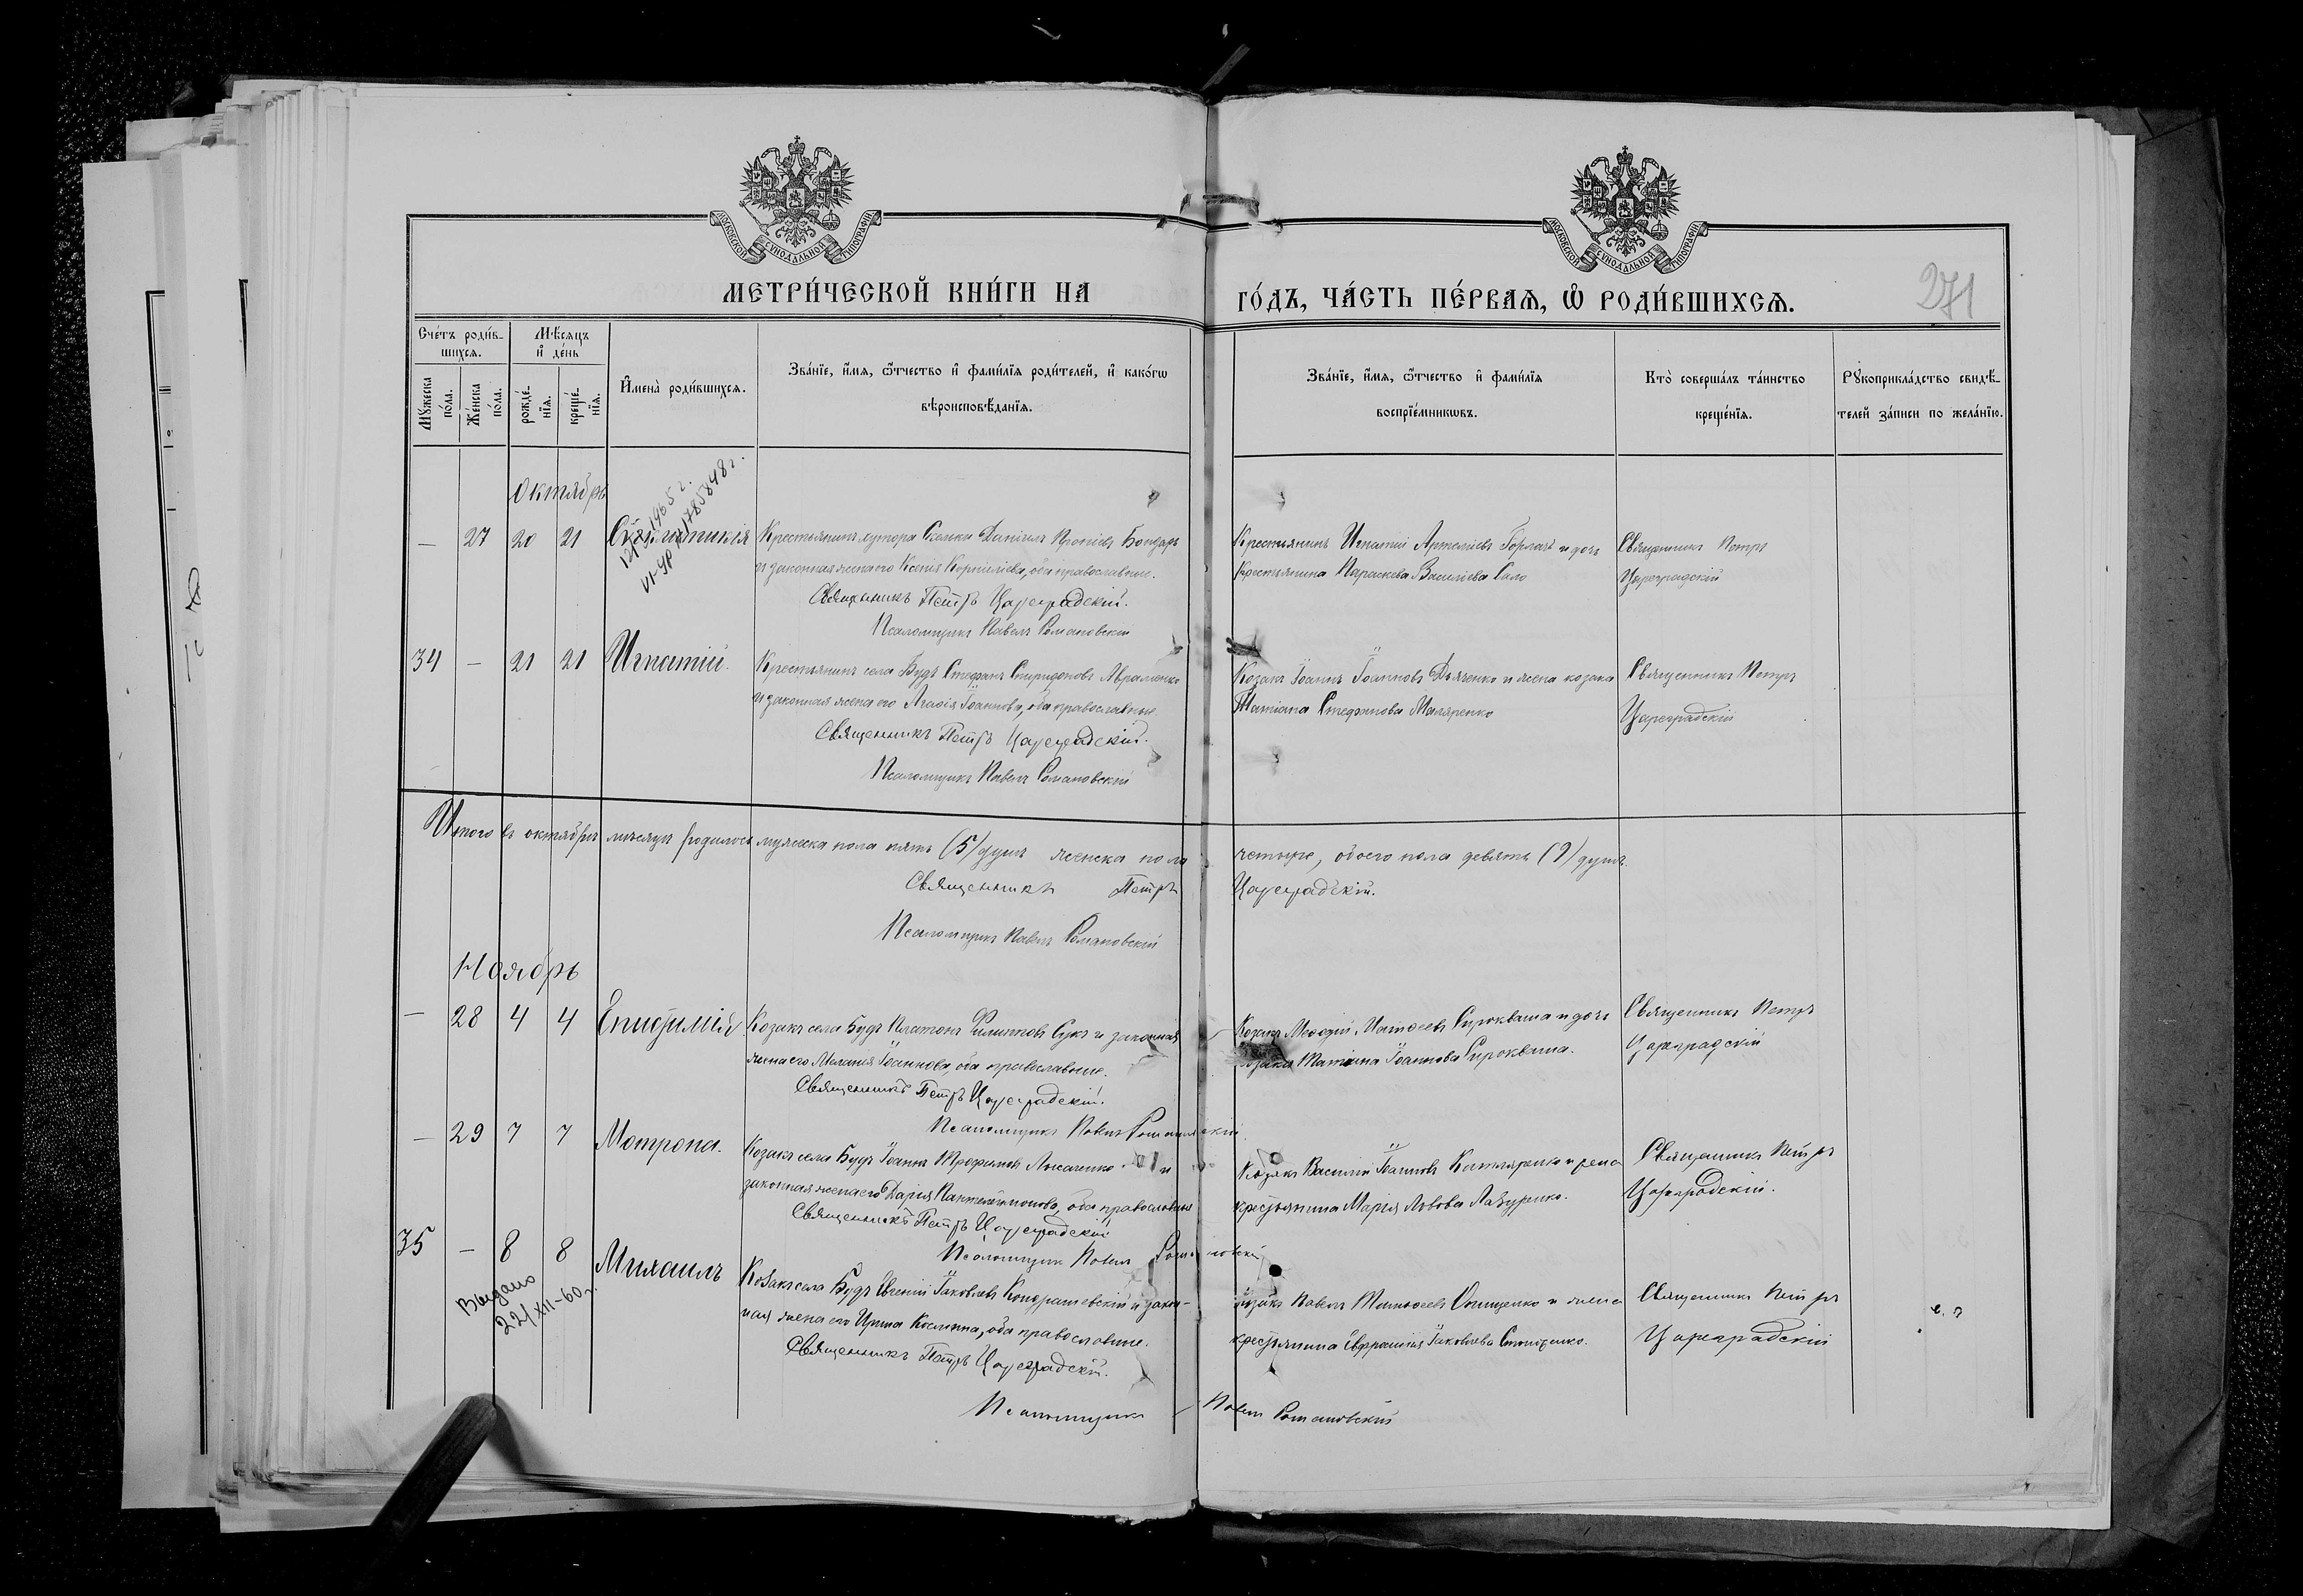 МОСКОВСКОЙ СУНОДАЛЬНОЙ ТИПОГРАФІИ
МОСКОВСКОЙ СУНОДАЛЬНОЙ ТИПОГРАФІИ
МЕТРИ́ЧЕСКОЙ КНИ́ГИ НА
ГО́ДЪ, ЧА́СТЬ ПЕ́РВАЯ, Ѡ҆ РОДИ́ВШИХСѦ.
271
Сче́тъ роди́в-
шихсѧ.
Мѣ́сѧцъ
и҆ де́нь
Мꙋ́жеска
по́ла.
Же́нска
по́ла.
рожде́-
нїѧ.
креще́-
нїѧ.
И҆мена̀ роди́вшихсѧ.
Зва́нїе, и҆́мѧ, ѻ҆́тчество и҆ фами́лїѧ роди́телей, и҆ како́гѡ
вѣроисповѣ́данїѧ.
Зва́нїе, и҆́мѧ, ѻ҆́тчество и҆ фами́лїѧ
воспрїе́мникѡвъ.
Кто̀ соверша́лъ та́инство
креще́нїѧ.
Рꙋкоприкла́дство свидѣ́-
телей за́писи по жела́нїю.
Октябрь
1965 г.
VI-УР № 1785848 г.
— 27 20 21
Крестьянинъ хутора Даніилъ Бондарь
и законная жена его Ксенія Корниліева, оба православные.
Священникъ Петръ Цареградскій.
Псаломщикъ Павелъ Романовскій
Крестьянинъ Игнатій Артеміевъ Горлачъ и дочь
крестьянина Параскева Василіева Сало
Священникъ Петръ
Цареградскій
34 — 21 21 Игнатій.
Крестьянинъ села Будъ Стефанъ Спиридоновъ Авраменко
и законная жена его Агафія Іоаннова, оба православные.
Священникъ Петръ Цареградскій.
Псаломщикъ Павелъ Романовскій
Козакъ Іоаннъ Іоанновъ Дьяченко и жена козака
Татіана Стефанова Маляренко
Священникъ Петръ
Цареградскій
Итого въ октябрѣ мѣсяцѣ родилось мужеска пола пять (5) душъ женска пола четыре, обоего пола девять (9) душъ.
Священникъ Петръ Цареградскій.
Псаломщикъ Павелъ Романовскій
Ноябрь
— 28 4 4
Козакъ села Будъ Платонъ Филипповъ Сукъ и законная
жена его Меланія Іоаннова, оба православные.
Священникъ Петръ Цареградскій.
Псаломщикъ Павелъ Романовскій
Козакъ Меѳодій Матѳеевъ Сирокваша и дочь
козака Татіана Іоаннова Сирокваша.
Священникъ Петръ
Цареградскій
— 29 7 7 Матрона.
Козакъ села Будъ Іоаннъ Трофимовъ Лысаченко и
законная жена его Дарія Пантелеимонова, оба православные
Священникъ Петръ Цареградскій
Псаломщикъ Павелъ Романовскій
Козакъ Василій Іоанновъ Котляренко и жена
крестьянина Марія Львова Лазуренко.
Священникъ Петръ
Цареградскій.
35 — 8 8 Михаилъ
Выдано
22/XII-60 г.
Козакъ села Будъ Евгеній Іаковлевъ Кондрашевскій и закон-
ная жена его Ирина Косьмина, оба православные.
Священникъ Петръ Цареградскій.
Псаломщикъ Павелъ Романовскій
Козакъ Павелъ Онищенко и жена
крестьянина Евфросинія Іаковлева
Священникъ Петръ
Цареградскій